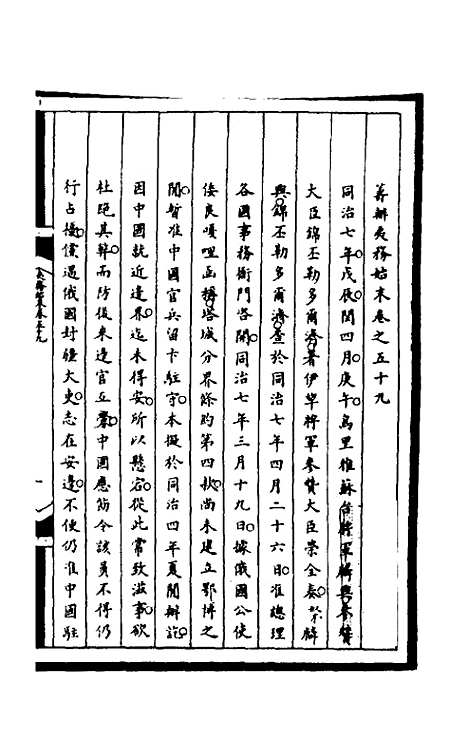 籌辦夷務始末卷之五十九
同治七年戊辰閏四月庚午烏里雅蘇台將軍麟興參贊
大臣錦丕勒多爾濟署伊犂將軍參贊大臣榮全奏麟
興錦丕勒多爾濟查於同治七年四月二十六日准總理
各國事務衙門咨開同治七年三月十九日據俄國公使
倭良嘎哩函稱塔城分界條約第四款尚未建立鄂博之
間暫准中國官兵留卡駐守本擬於同治四年夏間辦訖
因中國就近邊界迄未得安所以懸宕從此常致滋事欲
杜絕其弊而防後來邊官互釁中國應飭令該員不得仍
行占擾儻遇俄國封疆大吏志在安邊不使仍准中國駐
夷務始末卷五十九
一